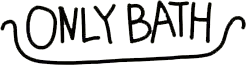 ONLY BATH